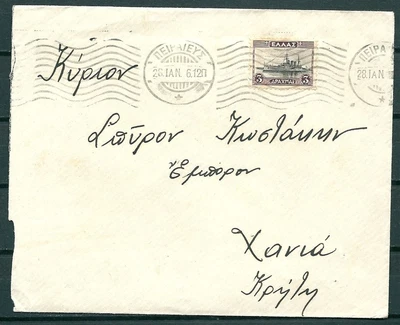 ΠΕΙΡΑΙΕΥΣ
28.ΙΑΝ. 6.12Π
ΕΛΛΑΣ
5 ΔΡΑΧΜΑΙ 5
ΠΕΙΡΑ
28.ΙΑΝ
Κύριον
Σπύρον Κωστάκην
Έμπορον
Χανιά
Κρήτη